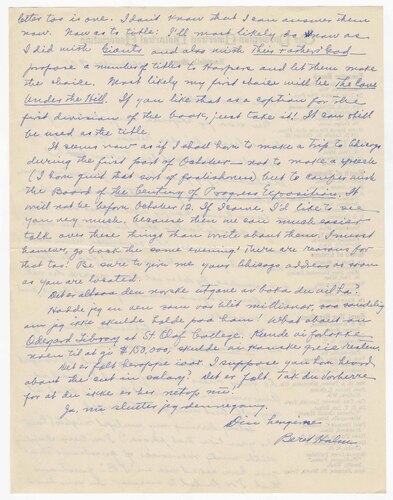 letter too is one. I don't know that I can answer them
now. Now as to title: I'll most likely do now as
I did with Giants and also with Their Fathers' God
propose a number of titles to Harpers and let them make
the choice. Most likely my first choice will be The Cave
Under the Hill. If you like that as a caption for the
first division of the book, just take it! It can still
be used as the title.
It seems now as if I shall have to make a trip to Chicago
during the first part of October — not to make a speech
(I have quit that sort of foolishness) but to confer with
the Board of the Century of Progress Exposition. It
will not be before October 12. If I come, I'd like to see
you very much, because then we can much easier
talk over these things than write about them. I must
however, go back the same evening! There are reasons for
that too! Be sure to give me your Chicago address as soon
as you are located.
Det er altsaa den norske utgave av boka du vil ha?
Hadde jeg en ven som var blit millionær, saa sandelig
om jeg ikke skulde halde paa ham! What about an
Odegard Library at St. Olaf College. Kunde vi faa lokke
noen til at gi $150,000, skulde an kanske greie resten.
Det er falt her oppe isør. I suppose you have heard
about the cut in salary? Det er falt. Tak du Vorherre
for at du ikke er her netop nu!
Ja, nu slutter jeg denne gang.
Din hengivne
Beret Holm